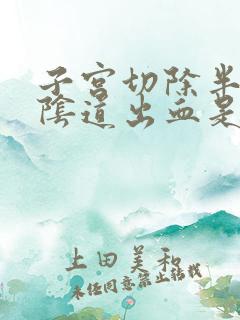 子宮切除半
陰道出血是
上田美和
未经同意禁止转载